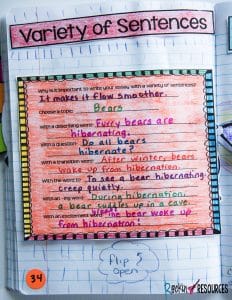 Variety of Sentences
Why is it important to write your essay with a variety of sentences?
It makes it flow smoother.
Choose a topic: Bears
With a describing word: Furry bears are
hibernating.
With a question: Do all bears
hibernate?
With a transition word: After winter, bears
wake up from hibernation.
With the word to: To see a bear hibernating
creep quietly.
With an -ing word: During hibernation,
a bear snuggles up in a cave.
With an excitement: the bear woke up
from hibernation!
34
flip &
open
RESOURCES